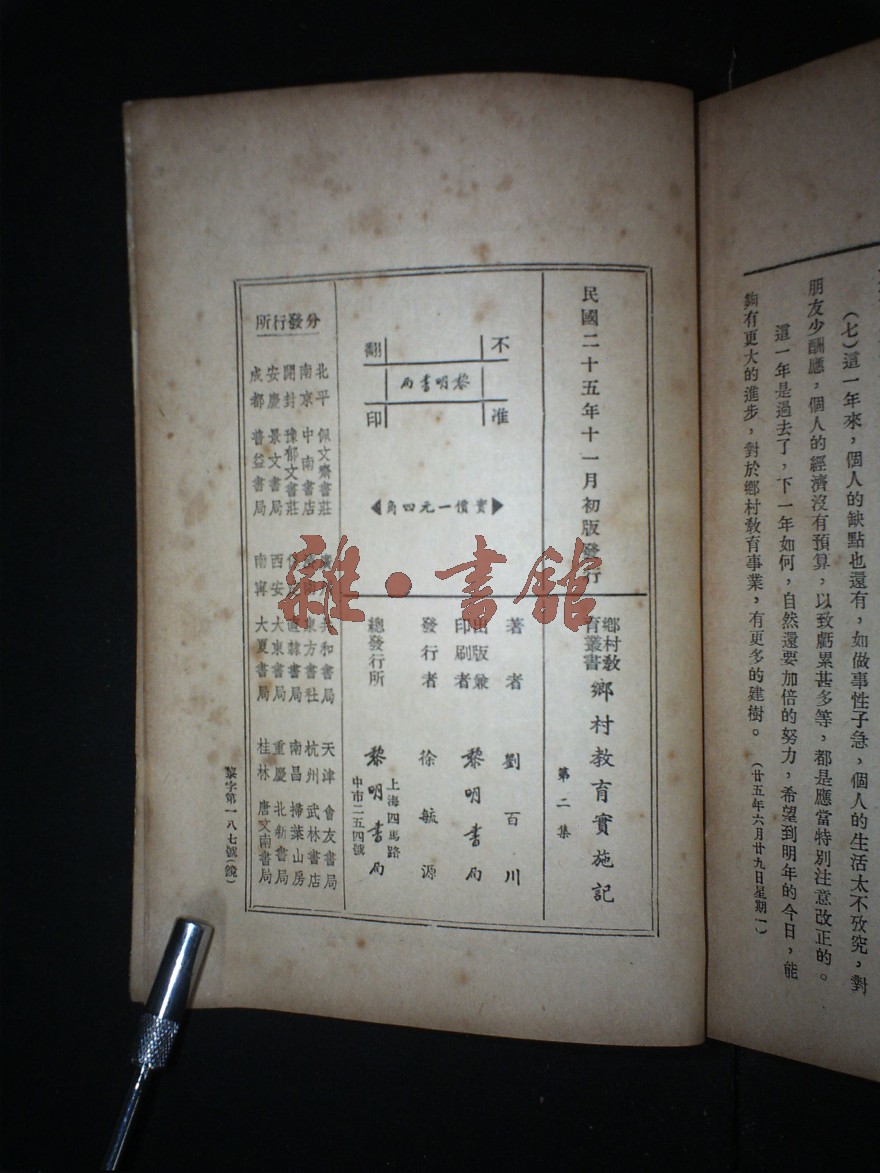 (七)這一年來，個人的缺點也還有，如做事性子急，個人的生活太不攷究，對
朋友少酬應，個人的經濟沒有預算，以致虧累甚多等，都是應當特別注意改正的。
這一年是過去了，下一年如何，自然還要加倍的努力，希望到明年的今日，能
夠有更大的進步，對於鄉村教育事業，有更多的建樹。(廿五年六月廿九日星期一)
民國二十五年十一月初版發行
鄉村教育叢書
鄉村教育實施記
第二集
不准翻印
黎明書局
實價一元四角
著者 劉百川
出版兼印刷者 黎明書局
發行者 徐毓源
總發行所 黎明書局
上海四馬路
中市二五四號
分發行所
北平 佩文齋書莊
南京 中南書店
開封 豫郁文書莊
安慶 景文書局
成都 普益書局
共和書局
東方書社
書局
西安 大東書局
南寧 大夏書局
天津 會友書局
杭州 武林書店
南昌 掃葉山房
重慶 北新書局
桂林 唐文南書局
黎字第一八七號(鏡)
雜·書館